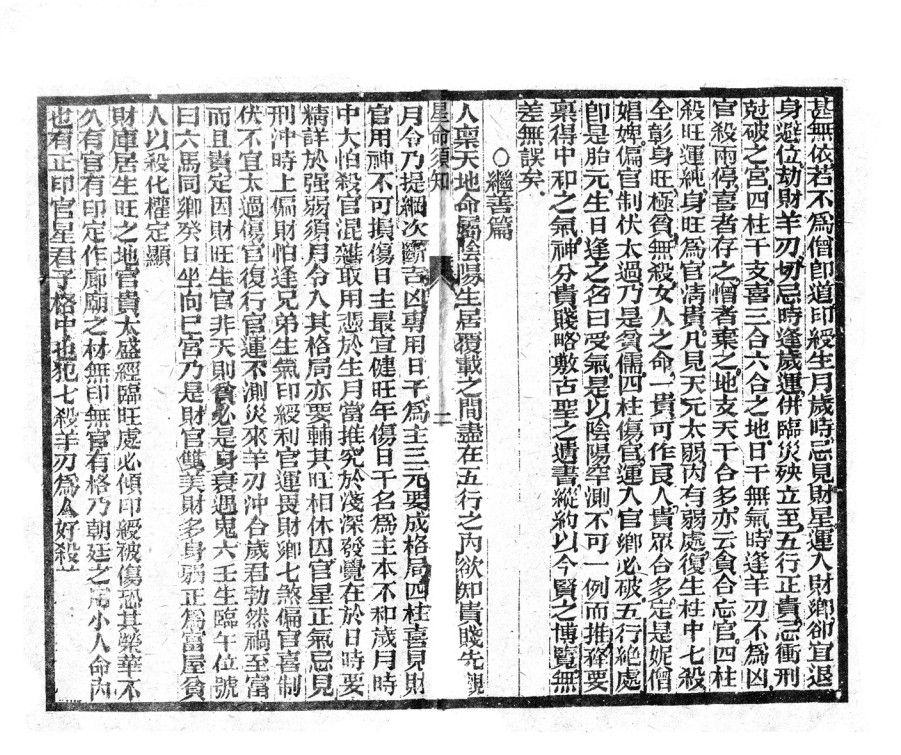 甚無依若不爲僧卽道印綬生月歲時忌見財星運入財鄉卻宜退
身避位劫財羊刃切忌時逢歲運併臨災殃立至五行正貴忌衝刑
尅破之宮四柱干支喜三合六合之地日干無氣時逢羊刃不爲凶
官殺兩停喜者存之憎者棄之地支天干合多亦云貪合忘官四柱
殺旺運純身旺爲官淸貴凡見天元太弱內有弱處復生柱中七殺
全彰身旺極貧無殺女人之命一貴可作良人貴眾合多定是妮僧
娼婢偏官制伏太過乃是貧儒四柱傷官運入官鄉必破五行絕處
卽是胎元生日逢之名曰受氣是以陰陽罕測不可一例而推務要
稟得中和之氣神分貴賤略敷古聖之遺書縱約以今賢之博覽無
差無誤矣
○繼善篇
人稟天地命屬陰陽生居覆載之間盡在五行之內欲知貴賤先觀
星命須知 二
月令乃提綱次斷吉凶專用日干爲主三元要成格局四柱喜見財
官用神不可損傷日主最宜健旺年傷日干名爲主本不和歲月時
中大怕殺官混雜取用憑於生月當推究於淺深發覺在於日時要
精詳於强弱須月令入其格局亦要輔其旺相休囚官星正氣忌見
刑沖時上偏財怕逢兄弟生氣印綬利官運畏財鄉七煞偏官喜制
伏不宜太過傷官復行官運不測災來羊刃沖合歲君勃然禍至富
而且貴定因財旺生官非夭則貧必是身衰遇鬼六壬生臨午位號
曰六馬同鄉癸日坐向巳宮乃是財官雙美財多身弱正爲富屋貧
人以殺化權定顯
財庫居生旺之地官貴太盛經臨旺處必傾印綬被傷恐其榮華不
久有官有印定作廊廟之材無印無官有格乃朝廷之用小人命內
也有正印官星君子格中也犯七殺羊刃爲人好殺